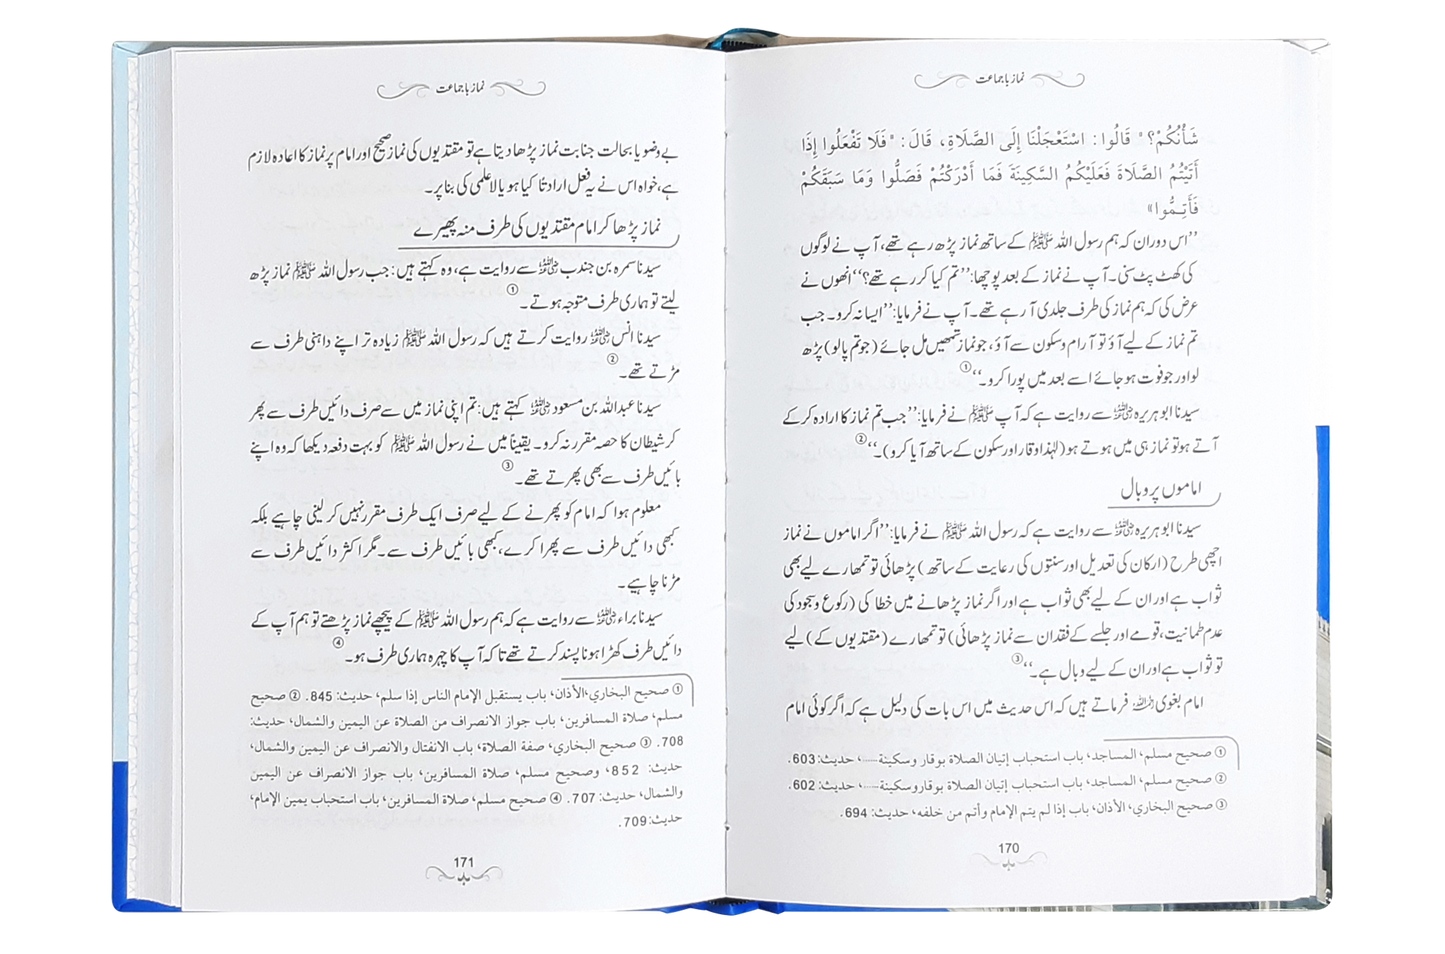 نماز باجماعت
شَأْنُكُمْ؟ » قَالُوا: اسْتَعْجَلْنَا إِلَى الصَّلَاةِ، قَالَ: « فَلَا تَفْعَلُوا إِذَا
أَتَيْتُمُ الصَّلَاةَ فَعَلَيْكُمُ السَّكِينَةَ فَمَا أَدْرَكْتُمْ فَصَلُّوا وَمَا سَبَقَكُمْ
فَأَتِمُّوا»
’’اس دوران کہ ہم رسول اللہ ﷺ کے ساتھ نماز پڑھ رہے تھے، آپ نے لوگوں
کی کھٹ پٹ سنی۔ آپ نے نماز کے بعد پوچھا: ’’تم کیا کر رہے تھے؟‘‘ انھوں نے
عرض کی کہ ہم نماز کی طرف جلدی آ رہے تھے۔ آپ نے فرمایا: ’’ایسا نہ کرو۔ جب
تم نماز کے لیے آؤ تو آرام و سکون سے آؤ، جو نماز تمھیں مل جائے (جو تم پالو) پڑھ
لو اور جو فوت ہو جائے اسے بعد میں پورا کرو۔‘‘①
سیدنا ابو ہریرہ ؓ سے روایت ہے کہ آپ ﷺ نے فرمایا: ’’جب تم نماز کا ارادہ کر کے
آتے ہو تو نماز ہی میں ہوتے ہو (لہٰذا وقار اور سکون کے ساتھ آیا کرو)۔‘‘②
اماموں پر وبال
سیدنا ابو ہریرہ ؓ سے روایت ہے کہ رسول اللہ ﷺ نے فرمایا: ’’اگر اماموں نے نماز
اچھی طرح (ارکان کی تعدیل اور سنتوں کی رعایت کے ساتھ) پڑھائی تو تمھارے لیے بھی
ثواب ہے اور ان کے لیے بھی ثواب ہے اور اگر نماز پڑھانے میں خطا کی (رکوع و سجود کی
عدم طمانیت، قومے اور جلسے کے فقدان سے نماز پڑھائی) تو تمھارے (مقتدیوں کے) لیے
تو ثواب ہے اور ان کے لیے وبال ہے۔‘‘③
امام بغوی رحمہ اللہ فرماتے ہیں کہ اس حدیث میں اس بات کی دلیل ہے کہ اگر کوئی امام
① صحیح مسلم، المساجد، باب استحباب إتيان الصلاة بوقار وسكينة.....، حدیث: 603.
② صحیح مسلم، المساجد، باب استحباب إتيان الصلاة بوقار وسكينة.....، حدیث: 602.
③ صحیح البخاري، الأذان، باب إذا لم يتم الإمام وأتم من خلفه، حدیث: 694.
170
نماز باجماعت
بے وضو یا بحالت جنابت نماز پڑھا دیتا ہے تو مقتدیوں کی نماز صحیح اور امام پر نماز کا اعادہ لازم
ہے، خواہ اس نے یہ فعل ارادتاً کیا ہو یا لاعلمی کی بنا پر۔
نماز پڑھا کر امام مقتدیوں کی طرف منہ پھیرے
سیدنا سمرہ بن جندب ؓ سے روایت ہے، وہ کہتے ہیں: جب رسول اللہ ﷺ نماز پڑھ
لیتے تو ہماری طرف متوجہ ہوتے۔①
سیدنا انس ؓ روایت کرتے ہیں کہ رسول اللہ ﷺ زیادہ تر اپنے داہنی طرف سے
مڑتے تھے۔②
سیدنا عبداللہ بن مسعود ؓ کہتے ہیں: تم اپنی نماز میں سے صرف دائیں طرف سے پھر
کر شیطان کا حصہ مقرر نہ کرو۔ یقیناً میں نے رسول اللہ ﷺ کو بہت دفعہ دیکھا کہ وہ اپنے
بائیں طرف سے بھی پھرتے تھے۔③
معلوم ہوا کہ امام کو پھرنے کے لیے صرف ایک طرف مقرر نہیں کر لینی چاہیے بلکہ
کبھی دائیں طرف سے پھرا کرے، کبھی بائیں طرف سے۔ مگر اکثر دائیں طرف سے
مڑنا چاہیے۔
سیدنا براء ؓ سے روایت ہے کہ ہم رسول اللہ ﷺ کے پیچھے نماز پڑھتے تو ہم آپ کے
دائیں طرف کھڑا ہونا پسند کرتے تھے تاکہ آپ کا چہرہ ہماری طرف ہو۔④
① صحیح البخاري، الأذان، باب يستقبل الإمام الناس إذا سلم، حدیث: 845. ② صحیح
مسلم، صلاة المسافرين، باب جواز الانصراف من الصلاة عن اليمين والشمال، حدیث:
708. ③ صحیح البخاري، صفة الصلاة، باب الانفتال والانصراف عن اليمين والشمال،
حدیث: 852، وصحیح مسلم، صلاة المسافرين، باب جواز الانصراف عن اليمين
والشمال، حدیث: 707. ④ صحیح مسلم، صلاة المسافرين، باب استحباب يمين الإمام،
حدیث: 709.
171